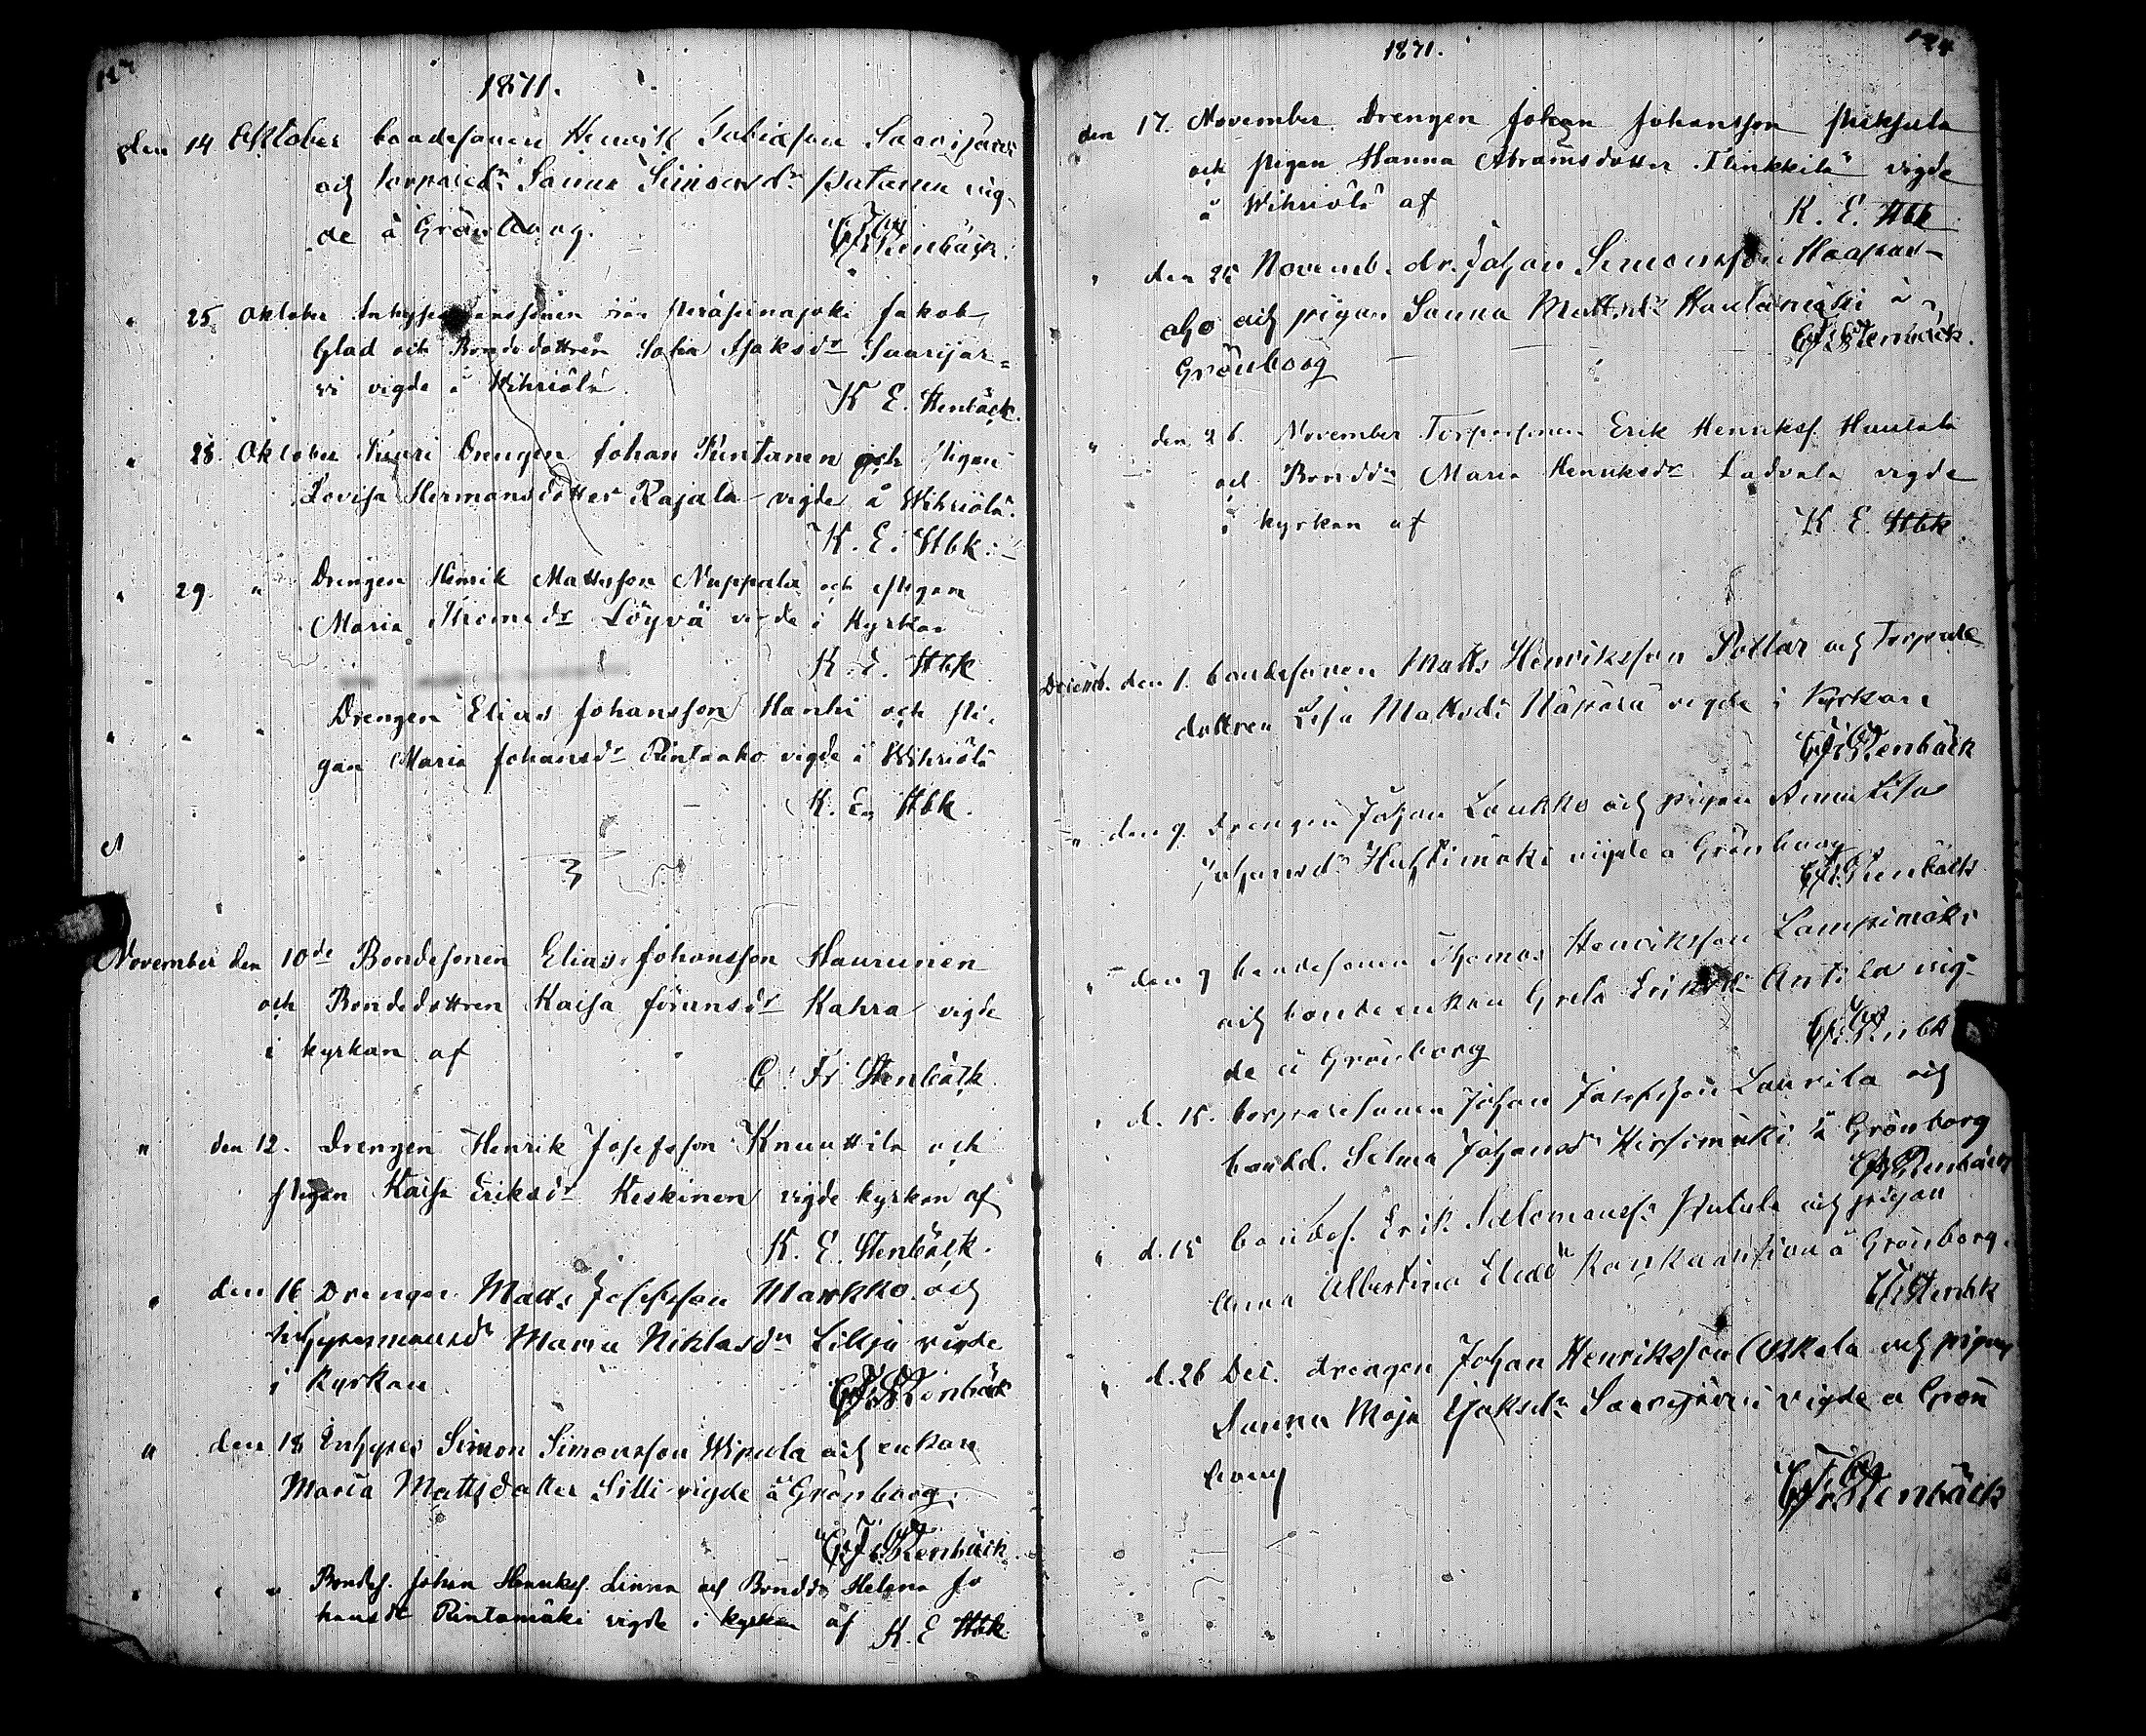 1871.
den 14 Oktober bondesonen Henrik Tobiasson Saarijärvi
och torpared:r Sanna Simonsd:r Putanen vig-
de å Grönborg.
C Fr Stenbäck.
" 25 Oktober Inhyses sonen från Peräseinäjoki Jakob
Glad och Bondedottren Sofia Isaksdr Saarijär=
vi vigde å Wihriälä
K E. Stenbäck.
" 28. Oktober Drengen Johan Puntanen och Pigan
Lovisa Hermansdotter Rajala vigde å Wihriälä.
K. E. Stbk.
" 29. " Drengen Henrik Mattsson Nuppala och Pigan
Maria Thomasdr Löyvä vigde i Kyrkan
K. E. Stbk
" " " Drengen Elias Johansson Hanhi och Pi-
gan Maria Johansdr Rintaaho vigde å Wihriälä
K. E. Stbk.
3
November den 10de Bondesonen Elias Johansson Haurunen
och Bondedottren Kaisa Göransdr Kahra vigde
i kyrkan af
C. Fr Stenbäck.
" den 12. Drengen Henrik Josefsson Knuuttila och
Pigan Kaisa Eriksdr Keskinen vigde kyrkan af
K. E. Stenbäck.
" den 16 Drengen Matts Josefsson Markko och
inhysesmansdr Maria Niklasdr Lillja vigde
i Kyrkan
C Fr Stenbäck
" den 18 Inhyses Simon Simonsson Wipula och enkan
Maria Mattsdotter Silli vigde å Grönborg.
C Fr Stenbäck.
" " " Bondes. Johan Henriks. Linna och Bondd. Helena Jo
hansdr Rintamäki vigde i kyrkan af K. E Stbk.
1871.
den 17. November Drengen Johan Johansson
och Pigan Hanna Abramsdotter Flinkkilä vigde
å Wihriälä af
K. E. Stbk
" den 25 Novemb. dr. Johan Simonsson Haapa-
aho och pigan Sanna Mattsdr Hautamäki å
Grönborg
C Fr Stenbäck.
" den 26. November Torparesonen Erik Henriks. Huulala
och Bondd:r Maria Henriksdr Ladvala vigde
i kyrkan af
K E. Stbk
Decemb. den 1. bondesonen Matts Henriksson Pollar och Torpare
dottren Lisa Mattsdr Näpärä vigde i Kyrkan
C Fr Stenbäck
" den 9. Drengen Johan Laukko och pigan Anna Lisa
Johansdr Huhtimäki vigde å Grönborg
C Fr. Stenbäck
" den 9 bondesonen Thomas Henriksson Lampimäki
och bondeenkan Greta Eriksdr Antila vig-
de å Grönborg
C Fr. Stenbäck
" d. 15. torparesonen Johan Josefsson Laurila och
bondd. Selma Johansdr Hirsimäki å Grönborg
C Fr Stenbäck
" d. 15 bondes. Erik Salomons. Putula och pigan
Anna Albertina Eliadr Kankaantian å Grönborg.
C Fr Stenbk
" d. 26 Dec. drengen Johan Henriksson Oskala och pigan
Sanna Maja Isaksdr Saarijärvi vigde å Grön
borg
C Fr Stenbäck